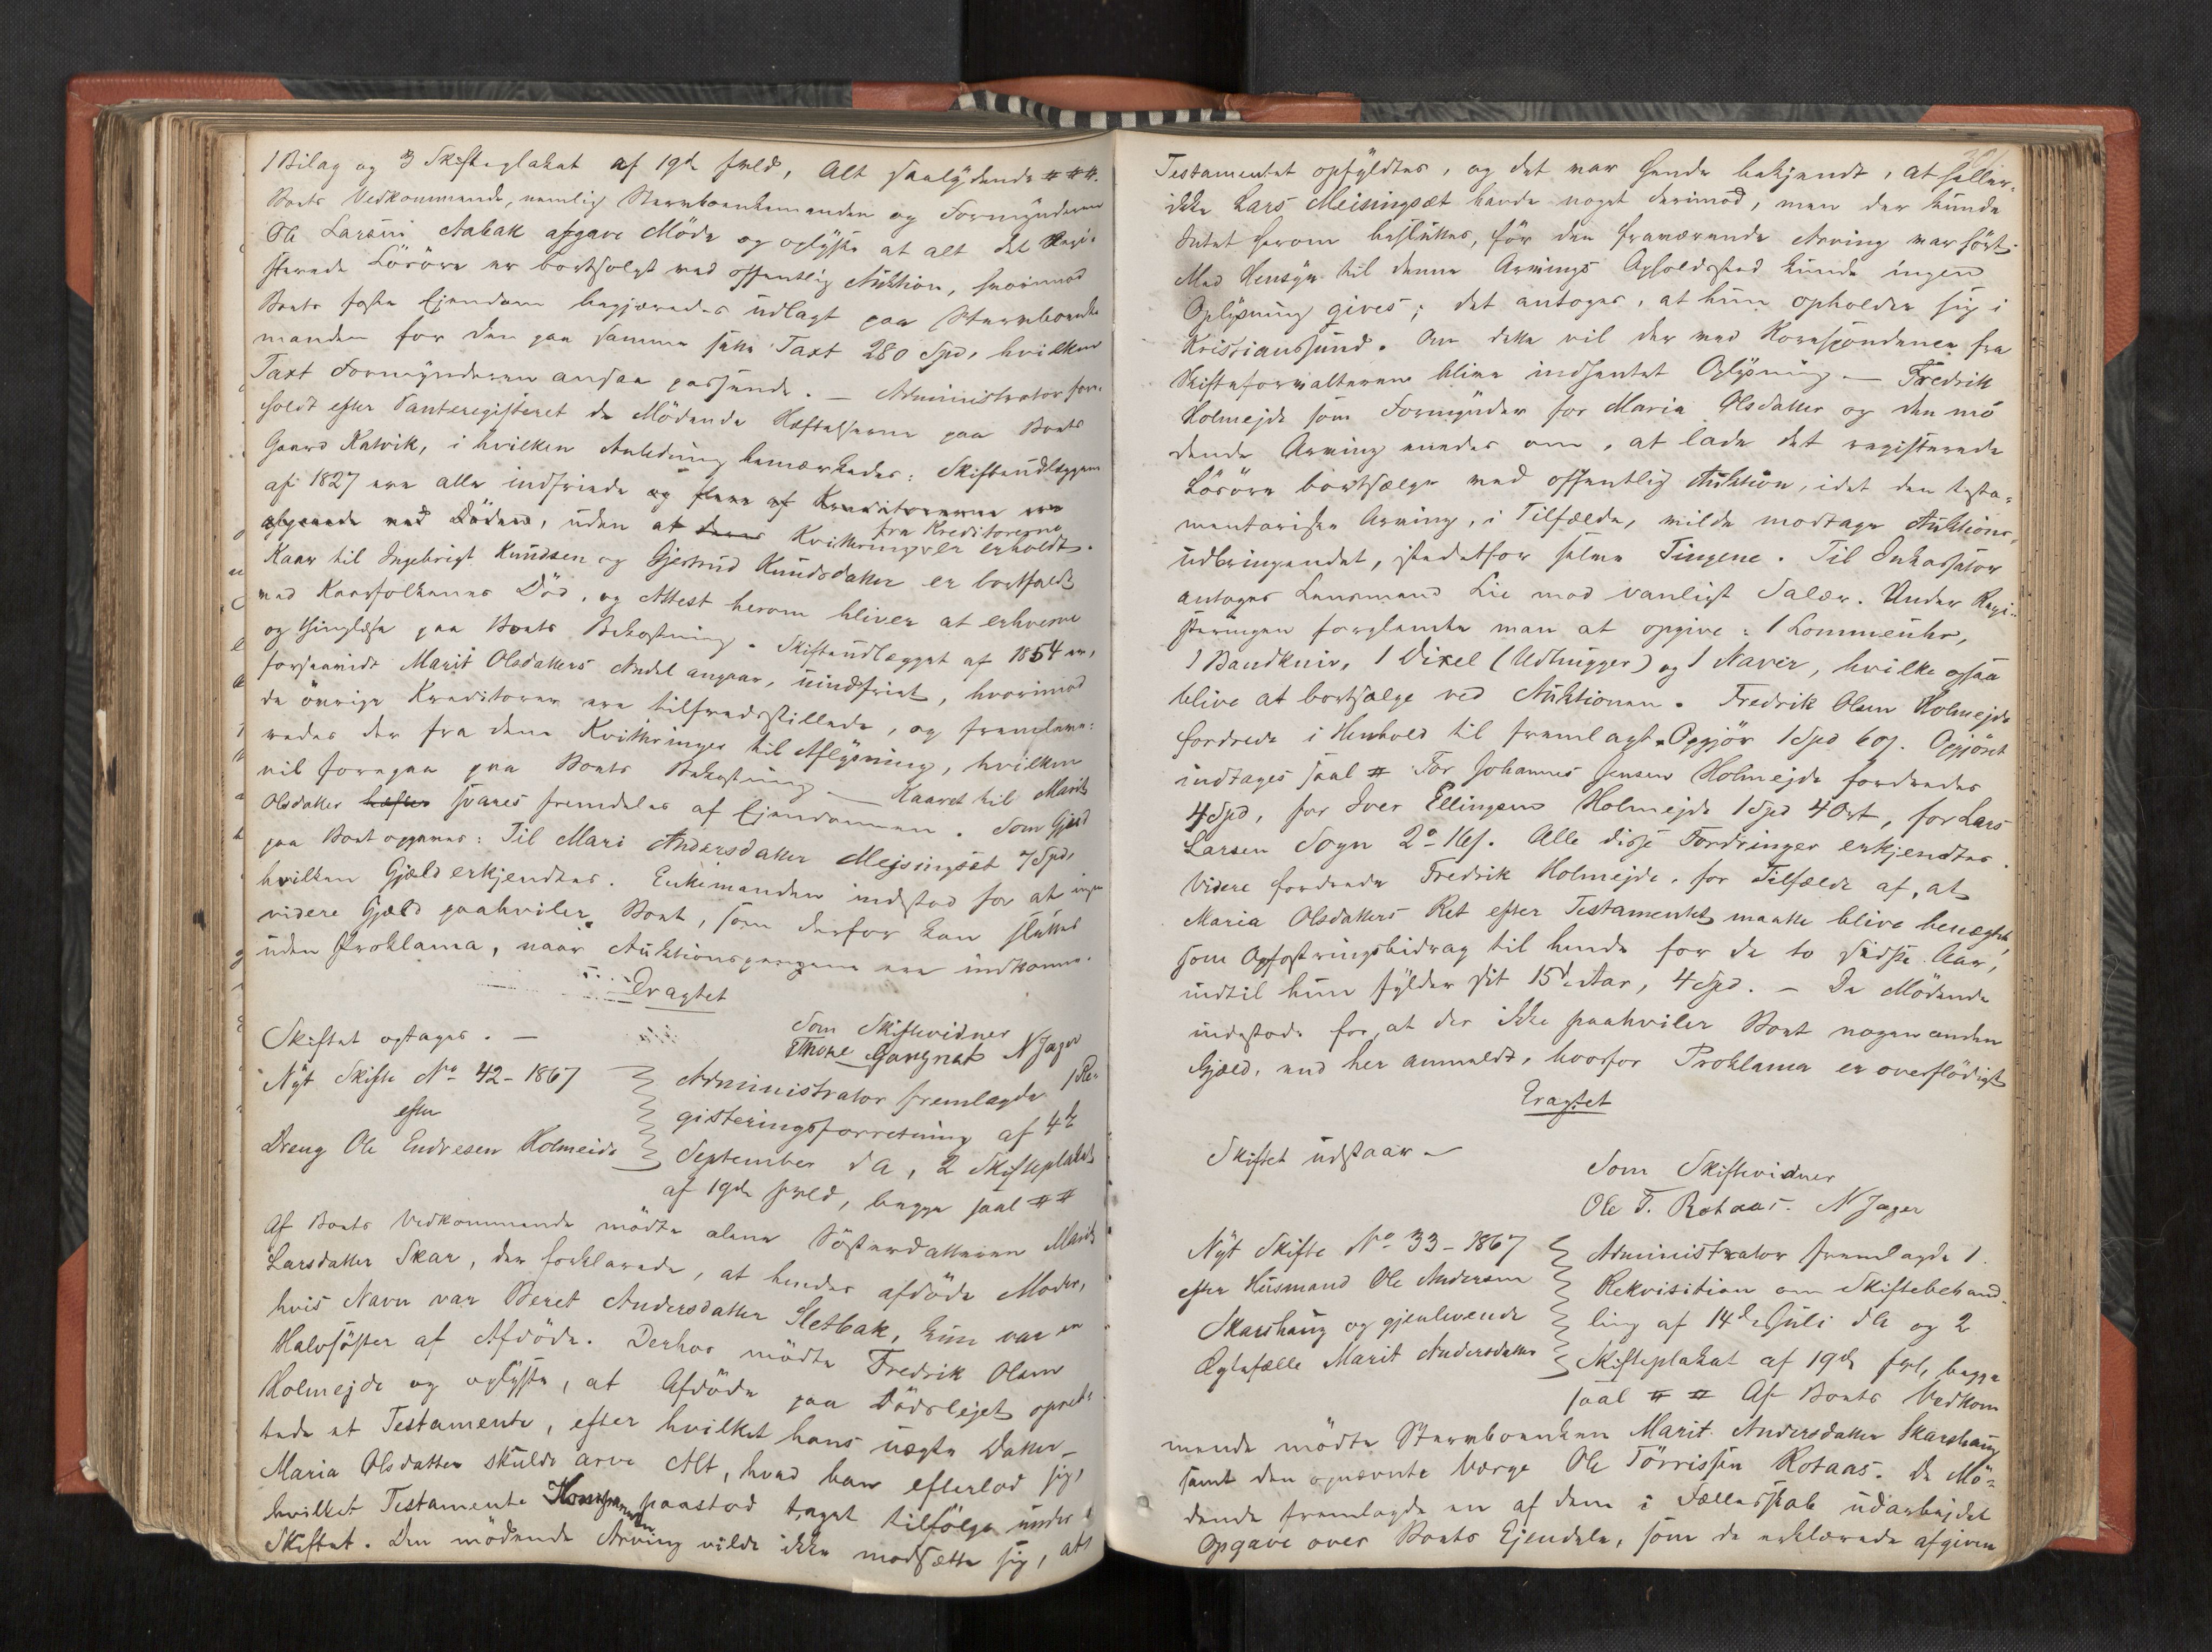 1 Bilag og 3 Skifteplakat af 19de f. Md, Alt saalydende # # #.
Boets Vedkommende, nemlig Stervboenkemanden og Formynderen
Ole Larsen Aabak afgave Møde og oplyste at alt det Regi-
strerede Løsøre er bortsolgt ved offentlig Auktion, hvorimod
Boets faste Ejendom begjæredes udlagt paa Stervboenke
manden for den paa samme satte Taxt 280 Spd, hvilken
Taxt Formynderen ansaa passende. — Administrator fore-
holdt efter Panteregisteret de Mødende Hæftelserne paa Boets
Gaard Kalvik, i hvilken Anledning bemærkedes: Skifteudlæggene
af 1827 ere alle indfriede og flere af Kreditorerne ere
afgaaede ved Døden, uden at deres Kvitteringer er erholdt.
fra Kreditorerne
Kaar til Ingebrigt Knudsen og Gjertrud Knudsdatter er bortfaldt
ved Kaarfolkenes Død, og Attest herom bliver at erhverve
og thinglæse paa Boets Bekostning. Skifteudlægget af 1854 er,
forsaavidt Marit Olsdatters Andel angaar, uindfriet, hvorimod
de øvrige Kreditorer ere tilfredsstillede, og fremleve-
redes der fra dem Kvitteringer til Aflysning, hvilken
vil foregaa paa Boets Bekostning — Kaaret til Marit
Olsdatter hæfter svares fremdeles af Ejendommen. Som Gjæld
paa Boet opgaves: Til Mari Andersdatter Mejsingset 7 Spd,
hvilken Gjæld erkjendtes. Enkemanden indestod for at ingen
videre Gjæld paahviler Boet, som derfor kan sluttes
uden Proklama, naar Auktionspengene ere indkomne.
Eragtet
Skiftet optages. —
Som Skiftevidner
N Jager
Nyt Skifte No 42 - 1867
efter
Dreng Ole Endresen Holmeide
Administrator fremlagde 1 Re-
gisteringsforretning af 4de
September d A, 2 Skifteplakat
af 19de f. Md, begge saal # #
Af Boets Vedkommende mødte alene Søsterdatteren Marit
Larsdatter Skar, der forklarede, at hendes afdøde Moder,
hvis Navn var Beret Andersdatter Sletbak, kun var en
Halvsøster af Afdøde. Derhos mødte Fredrik Olsen
Holmejde og oplyste, at Afdøde paa Dødslejet opret-
tede et Testamente, efter hvilket hans uægte Datter
Maria Olsdatter skulde arve Alt, hvad han efterlod sig,
hvilket Testamente Komparenten paastod taget tilfølge under
Skiftet. Den mødende Arving vilde ikke modsætte sig, at
Testamentet opfyldtes, og det var hende bekjendt, at heller-
ikke Lars Meisingsæt havde noget derimod, men der kunde
Intet herom besluttes, før den fraværende Arving var hørt.
Med Hensyn til denne Arvings Opholdssted kunde ingen
Oplysning gives; det antoges, at hun opholder sig i
Kristianssund. Om dette vil der ved Korespondence fra
Skifteforvalteren blive indhentet Oplysning — Fredrik
Holmejde som Formynder for Maria Olsdatter og den mø
dende Arving enedes om, at lade det registrerede
Løsøre bortsælge ved offentlig Auktion, idet den testa-
mentariske Arving, i Tilfælde, vilde modtage Auktions-
udbringendet, istedetfor selve Tingene. Til Inkassator
antoges Lensmand Lie mod vanligt Salær. Under Regi-
streringen forglemte man at opgive: 1 Lommeuhr,
1 Baudkniv, 1 Dixel (Udhugger) og 1 Naver, hvilke ogsaa
blive at bortsælge ved Auktionen. Fredrik Olsen Holmejde
fordrede i Henhold til fremlagt Opgjør 1 Spd 60 s. Opgjøret
indtages saal # For Johannes Jensen Holmejde fordredes
4 Spd, for Iver Ellingsen Holmejde 1 Spd 4 Ort, for Lars
Larsen Sogn 2 o - 16 s. Alle disse Fordringer erkjendtes.
Videre fordrede Fredrik Holmejde, for Tilfælde af, at
Maria Olsdatters Ret efter Testamentet maatte blive benegtet
som Opfostringsbidrag til hende for de to sidste Aar,
indtil hun fylder sit 15de Aar, 4 Spd. — De Mødende
indestode for, at der ikke paahviler Boet nogen anden
Gjæld, end her anmeldt, hvorfor Proklama er overflødigt
Eragtet
Skiftet udstaar —
Som Skiftevidner
Ole T. Rotaas. N Jager
Nyt Skifte No 33 - 1867
efter Husmand Ole Andersen
Skarshaug og gjenlevende
Ægtefælle Marit Andersdatter
Administrator fremlagde 1
Rekvisition om Skiftebehand-
ling af 14de Juli d A og 2
Skifteplakat af 19de f. M, begge
saal # # Af Boets Vedkom
mende mødte Stervboenken Marit Andersdatter Skarshaug
samt den opnævnte Værge Ole Tørrissen Rotaas. De Mø-
dende fremlagde en af dem i Fællesskab udarbejdet
Opgave over Boets Ejendele, som de erklærede afgiven